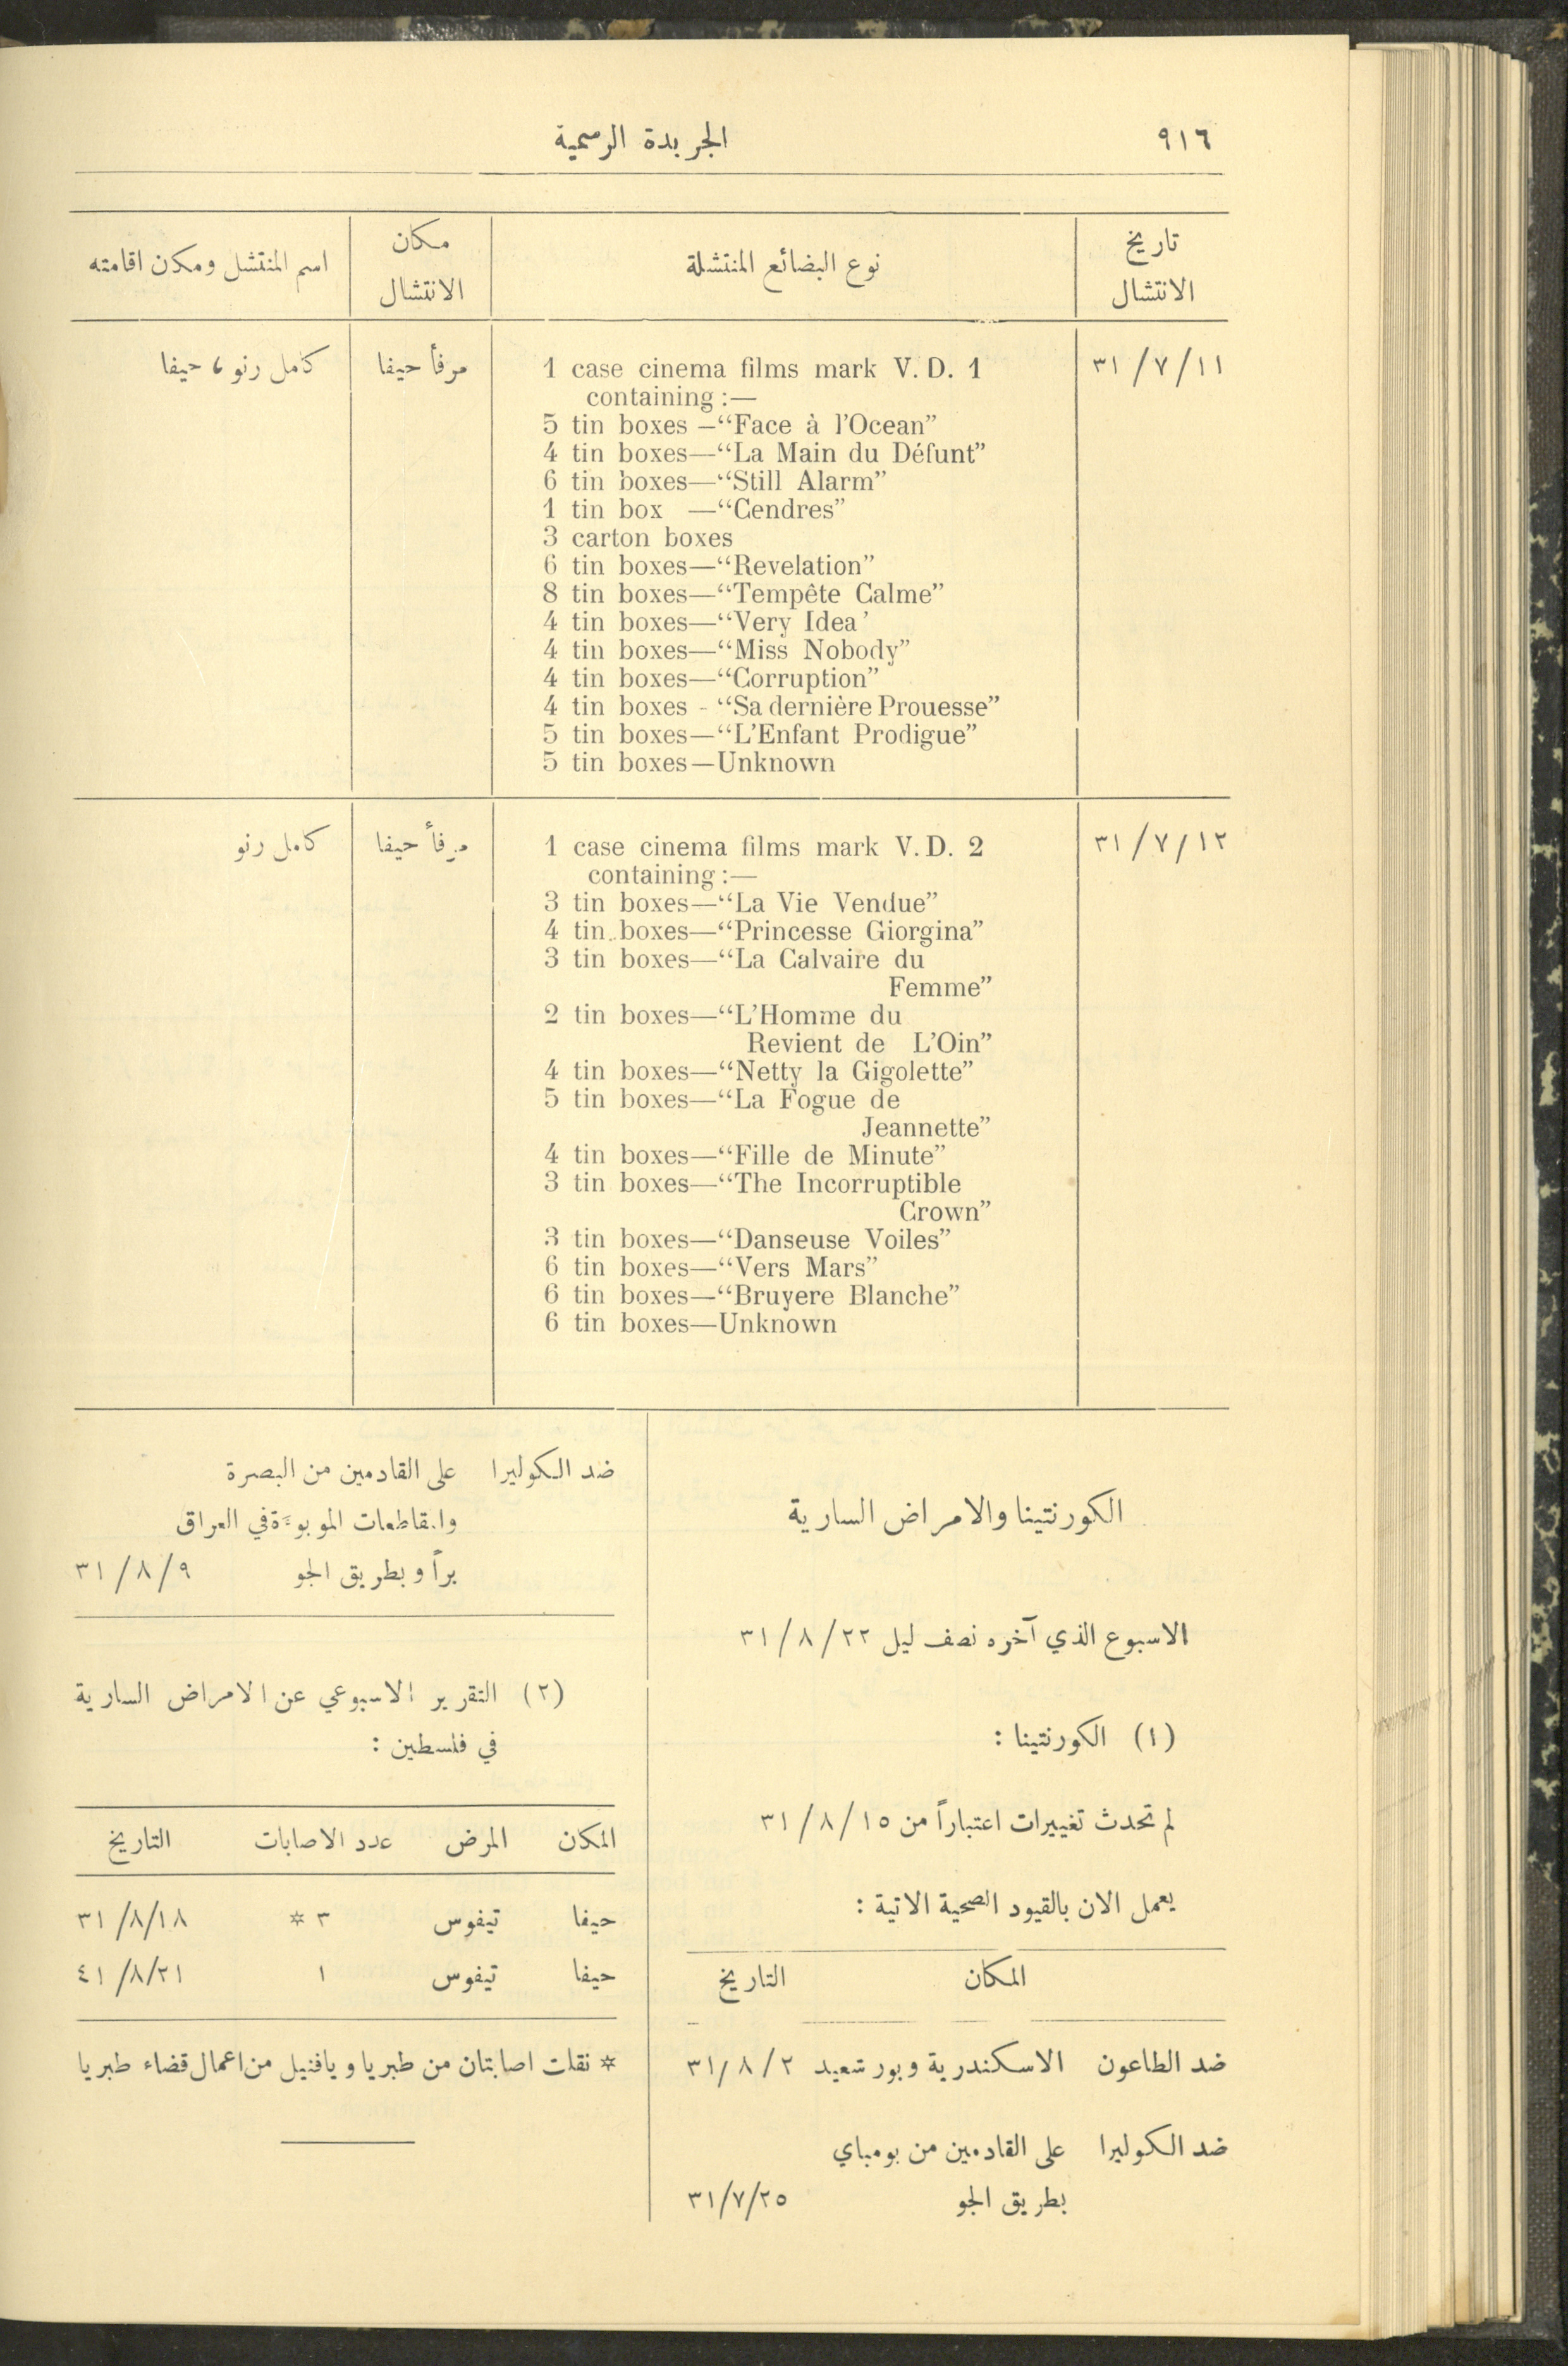 ٩١٦
الجريدة الرسمية
تاريخ الانتشال
نوع البضائع المنتشلة
مكان الانتشال
اسم المنتشل ومكن اقامته
٣١/٧/١١
1 case cinema films mark V. D. 1
containing :—
5 tin boxes –“Face à l’Ocean”
4 tin boxes—“La Main du Défunt”
6 tin boxes—“Still Alarm”
1 tin box —“Cendres”
3 carton boxes
6 tin boxes—“Revelation”
8 tin boxes—“Tempête Calme”
4 tin boxes—“Very Idea’
4 tin boxes—“Miss Nobody”
4 tin boxes—“Corruption”
4 tin boxes - “Sa dernière Prouesse”
5 tin boxes—“L’Enfant Prodigue”
5 tin boxes—Unknown
مرفأ حيفا
كامل رنو، حيفا
٣١/٧/١٢
1 case cinema films mark V. D. 2
containing :—
3 tin boxes—“La Vie Vendue”
4 tin boxes—“Princesse Giorgina”
3 tin boxes—“La Calvaire du
Femme”
2 tin boxes—“L’Homme du
Revient de L’Oin”
4 tin boxes—“Netty la Gigolette”
5 tin boxes—“La Fogue de
Jeannette”
4 tin boxes—“Fille de Minute”
3 tin boxes—“The Incorruptible
Crown”
3 tin boxes—“Danseuse Voiles”
6 tin boxes—“Vers Mars”
6 tin boxes—“Bruyere Blanche”
6 tin boxes—Unknown
مرفأ حيفا
كامل رنو
الكورنتينا والامراض السارية
الاسبوع الذي آخره نصف ليل ٣١/٨/٢٢
(١) الكورنتينا :
لم تحدث تغييرات اعتباراً من ٣١/٨/١٥
يعمل الان بالقيود الصحية الاتية :
المكان التاريخ
ضد الطاعون الاسكندرية وبور سعيد ٣١/٨/٢
ضد الكوليرا على القادمين من بومباي
بطريق الجو ٣١/٧/٢٥
ضد الكوليرا على القادمين من البصرة
والمقاطعات الموبوءة في العراق
براً وبطريق الجو ٣١/٨/٩
(٢) التقرير الاسبوعي عن الامراض السارية
في فلسطين :
المكان المرض عدد الاصابات التاريخ
حيفا تيفوس ٣ * ٣١/٨/١٨
حيفا تيفوس ١ ٤١/٨/٢١
* نقلت اصابتان من طبريا ويافنيل من اعمال قضاء طبريا